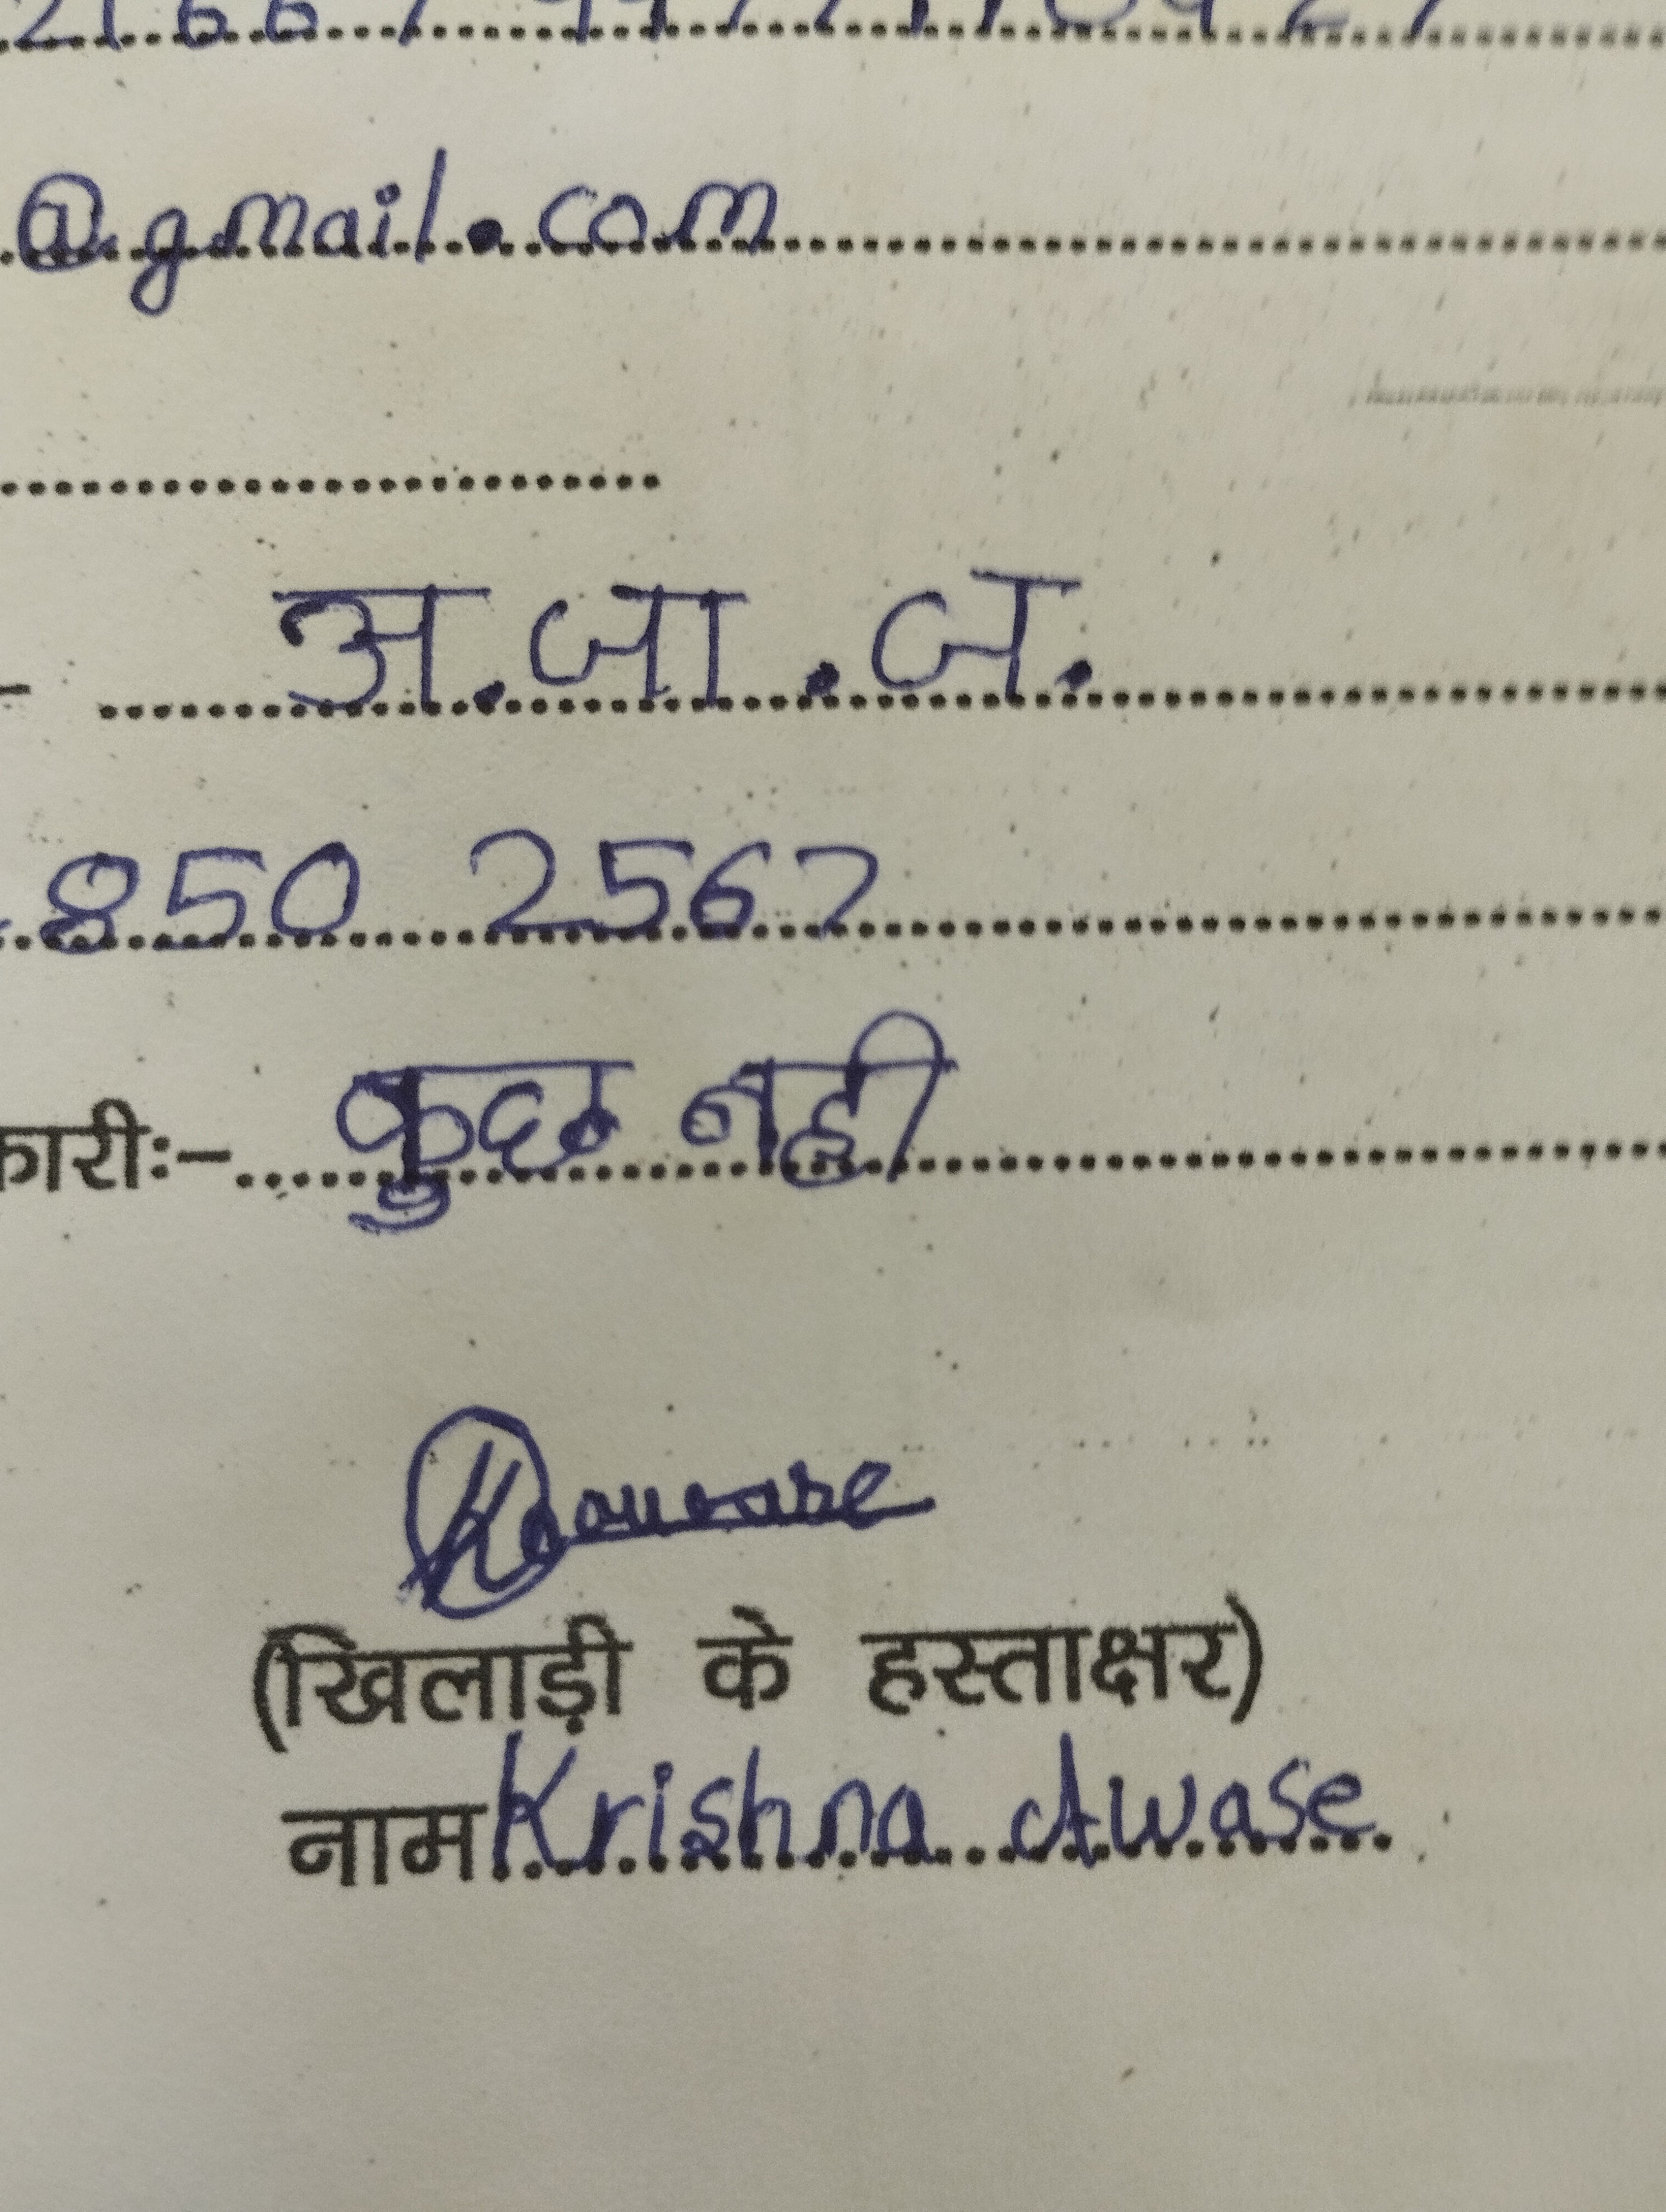 @gmail.com
अ.जा.ज.
850 2567
कारीः- कुछ नही
(खिलाड़ी के हस्ताक्षर)
नाम Krishna Awase